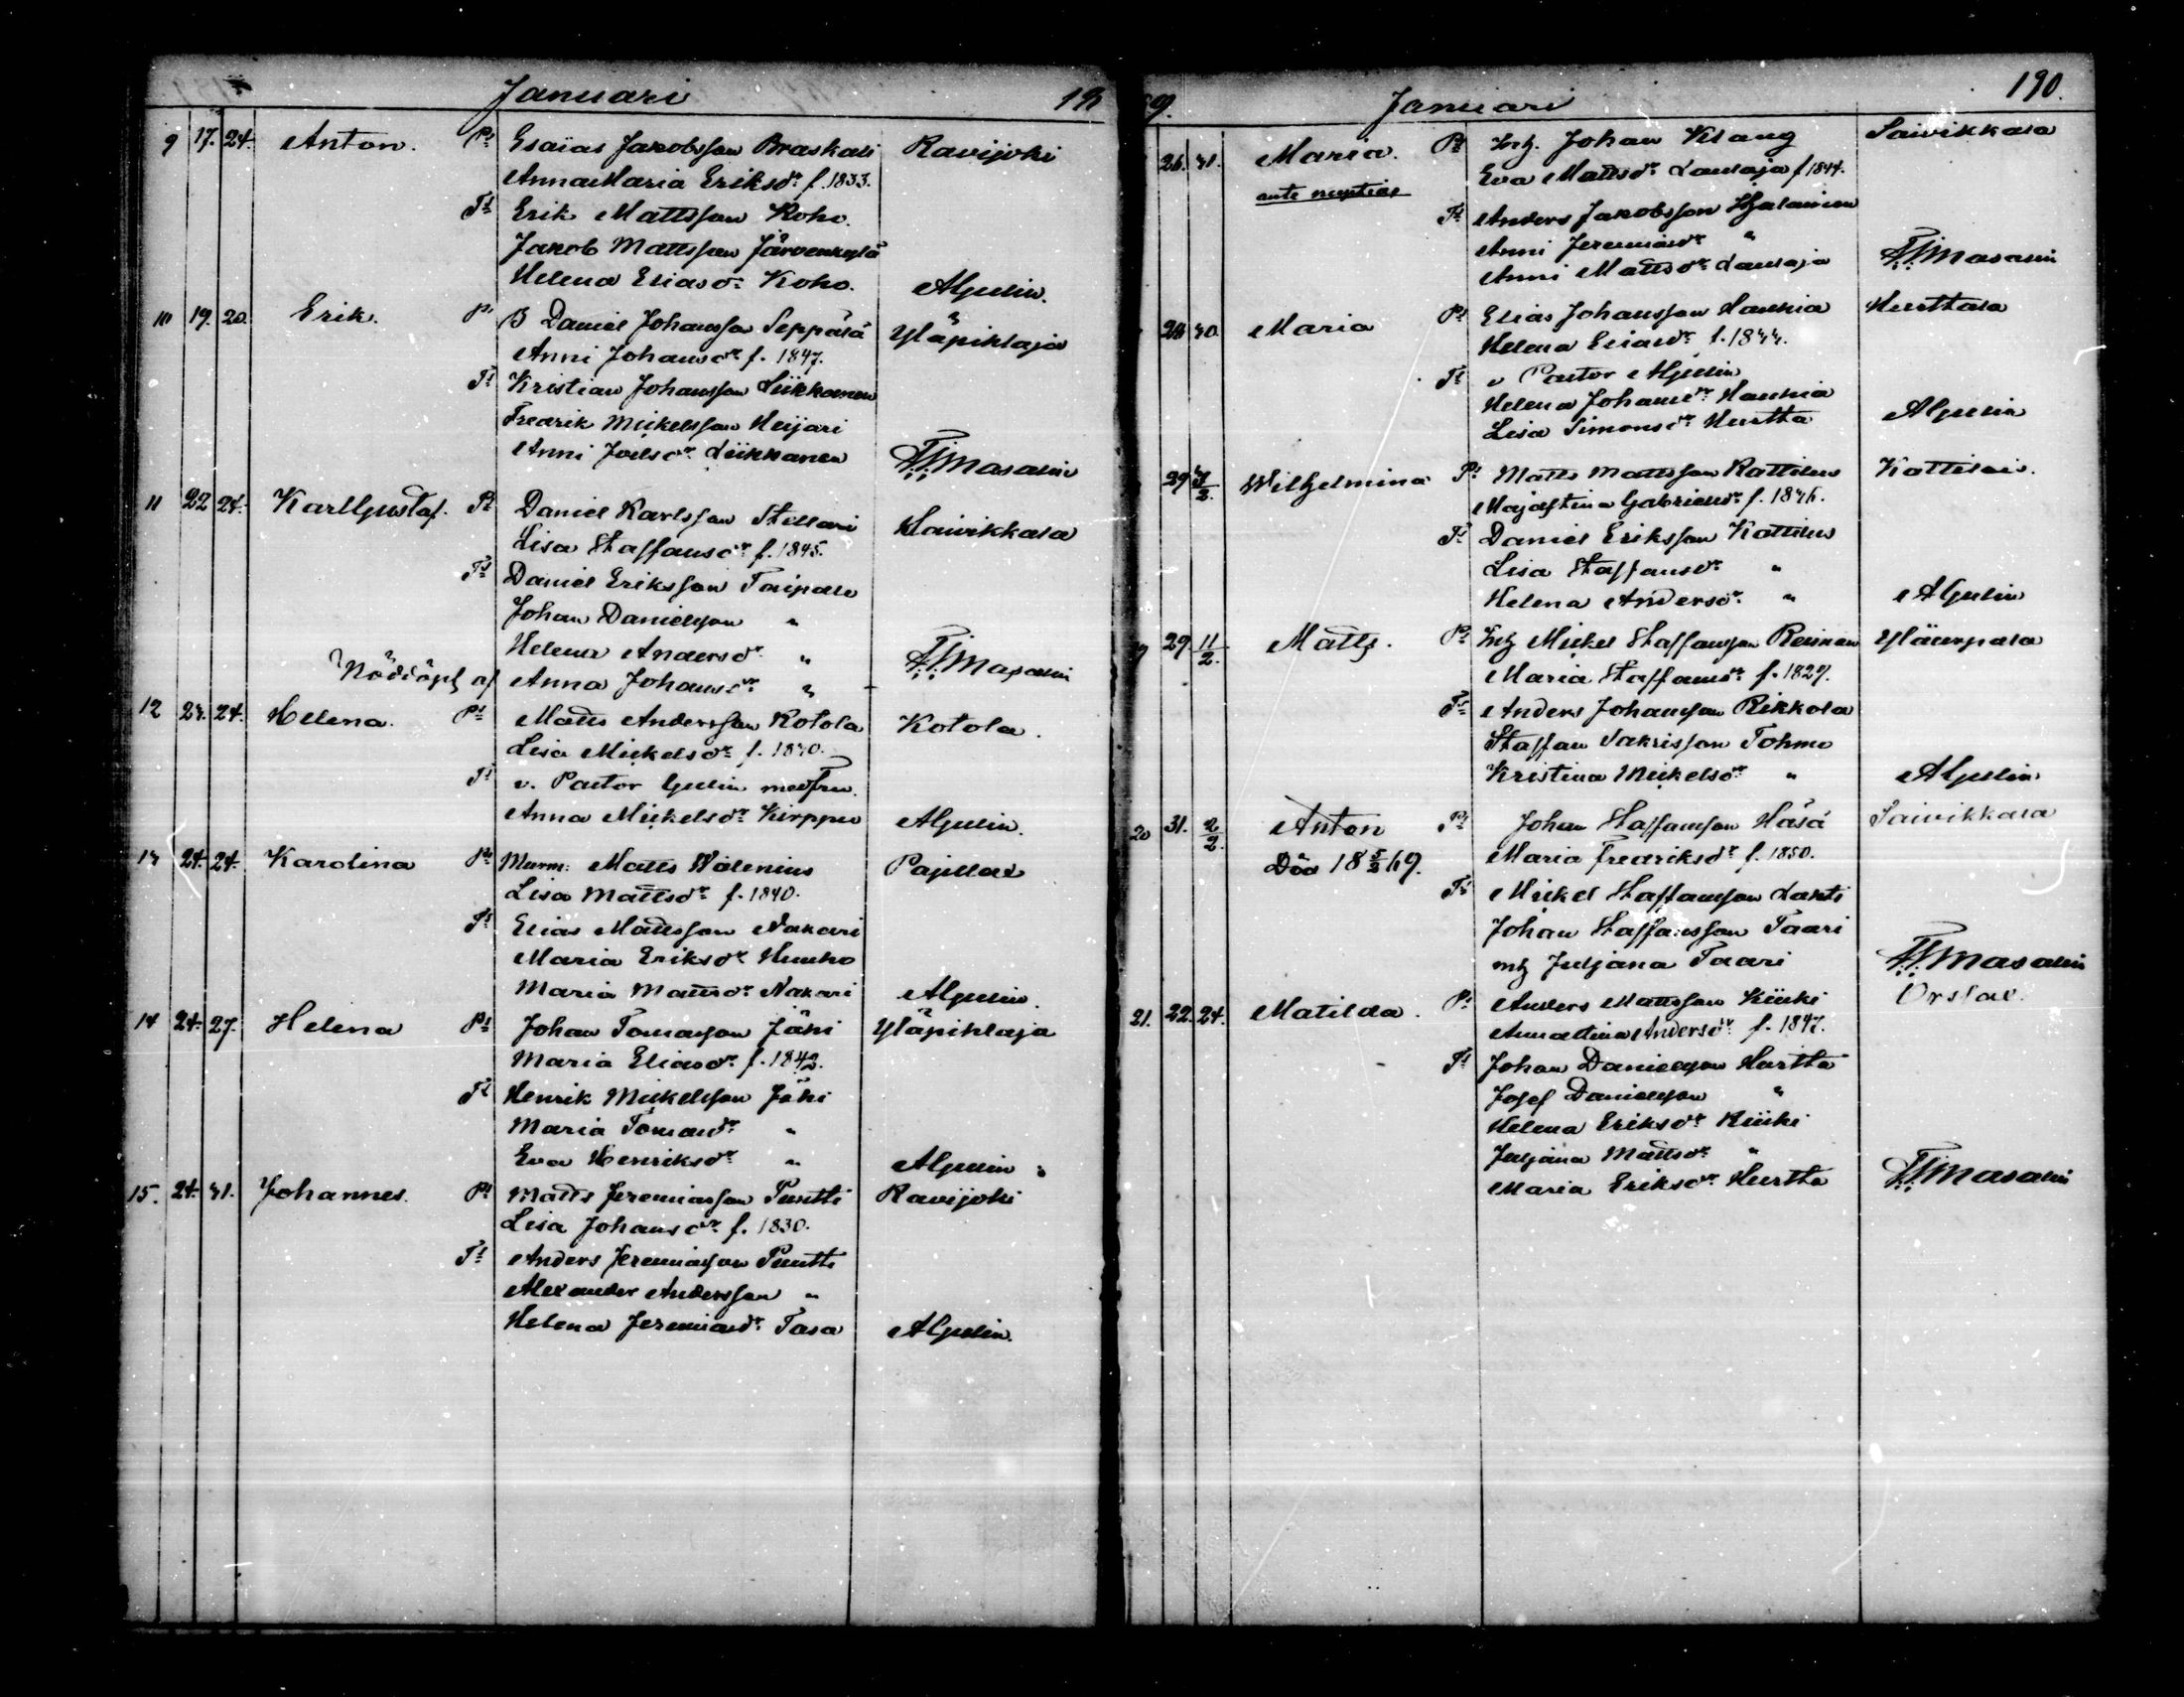 Januari 18
9 17. 24. Anton. Ps Esaias Jakobsson Braskali Ravijoki
Anna Maria Eriksdr f. 1833.
Ts Erik Mattsson Koho.
Jakob Mattsson Järvenkylä
Helena Eliasdr Koho. AGulin.
10 19. 20. Erik. Ps B Daniel Johansson Seppälä Yläpihlaja
Anni Johansdr f. 1847.
Ts Kristian Johansson Liikkanen
Fredrik Mickelsson Heijari
Anni Joelsdr Liikkanen Masalin
11 22 24. Karl Gustaf. Ps Daniel Karlsson Stellari Saivikkala
Lisa Staffansdr f. 1845.
Ts Daniel Eriksson Taipale
Johan Danielsson "
Helena Andersdr " Masalin
Nöddöpt af Anna Johansdr "
12 23. 24. Helena. Ps Matts Andersson Kotola Kotola.
Lisa Mickelsdr f. 1830.
Ts v. Pastor Gulin med fru.
Anna Mickelsdr Kirppu AGulin.
13 24. 24. Karolina Ps Murm: Matts Walenius Pajillas
Lisa Mattsdr f. 1840.
Ts Elias Mattsson Nakari
Maria Eriksdr Huuho
Maria Mattsdr Nakari AGulin.
14 24. 27. Helena Ps Johan Tomasson Jähi Yläpihlaja
Maria Eliasdr f. 1842.
Ts Henrik Mickelsson Jähi
Maria Tomasdr "
Eva Henriksdr " AGulin
15. 24. 31. Johannes. Ps Matts Jeremiasson Puntti Ravijoki
Lisa Johansdr f. 1830.
Ts Anders Jeremiasson Puntti
Alexander Andersson "
Helena Jeremiasdr Tasa AGulin.
69. Januari 190.
26. 31. Maria. Ps Inh. Johan Klang Saivikkala
ante nuptias Eva Mattsdr Laulaja f 1844.
Ts Anders Jakobsson
Anni Jeremiasdr "
Anni Mattsdr Laulaja Masalin
28 30. Maria Ps Elias Johansson Hanhia Hurttala
Helena Eliasdr f. 1833.
Ts v Pastor AGulin
Helena Johansdr Hanhia
Lisa Simonsdr Hurtta AGulin
29 7/2. Wilhelmina Ps Matts Mattsson Kattilus Kattilais.
Maja Stina Gabrielsdr f. 1836.
Ts Daniel Eriksson Kattilus
Lisa Staffansdr "
Helena Andersdr " AGulin
9 29. 11/2. Matts. Ps Inh Mickel Staffansson Reiman Yläurpala
Maria Staffansdr f. 1827.
Ts Anders Johansson Rikkola
Staffan Sakrisson Tohmo
Kristina Mickelsdr " AGulin
20 31. 2/2. Anton Ps Johan Staffansson Häsä Saivikkala
Död 18 5/2 69. Maria Fredriksdr f. 1850.
Ts Mickel Staffansson Lahti
Johan Staffansson Taari
mh Juljana Taari Masalin
21. 22. 24. Matilda. Ps Anders Mattsson Kiiki Orslax.
Anna Stina Andersdr f. 1847.
Ts Johan Danielsson Hurtta
Josef Danielsson "
Helena Eriksdr Kiiki
Juljana Mattsdr "
Maria Eriksdr Hurtta Masalin